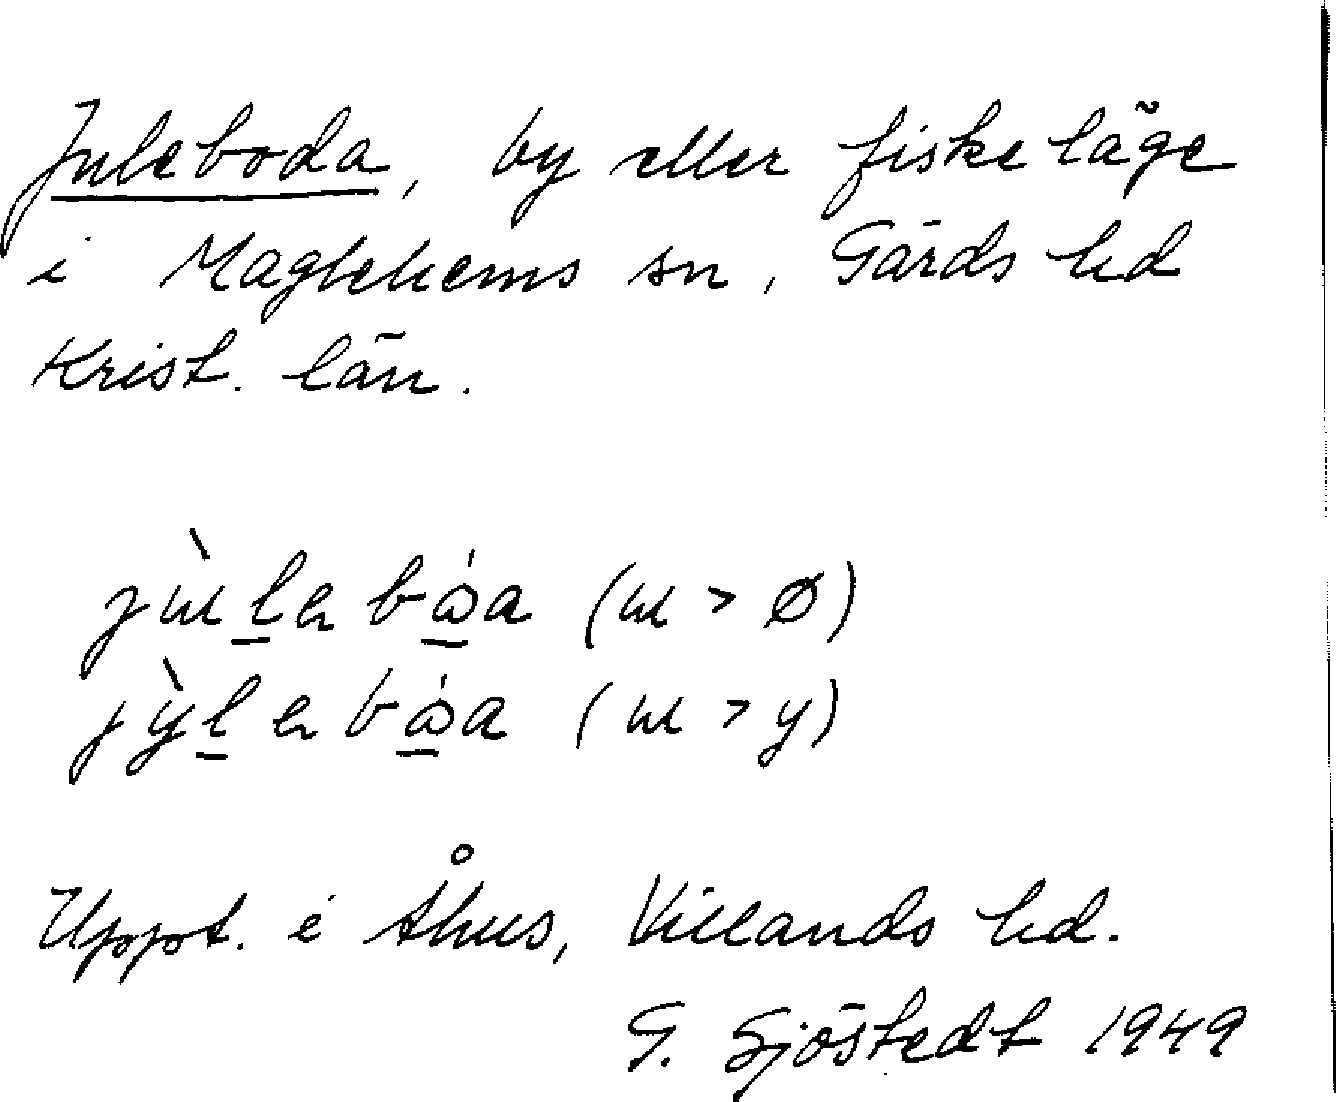 Juleboda, by eller fiskeläge
i Maglehems sn, Gärds hd
Krist. län.
jɯ̀lenbω̇a (ɯ > ø)
jỳlenbω̇a (ɯ > y)
Uppt. i Åhus, Villands hd.
G. Sjöstedt 1949